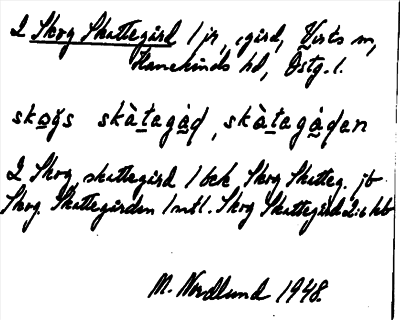 2 Skog Skattegård 1 jr, -gård, Vists sn,
Hanekinds hd, Östg. l.
skogs skàtagàd, skàtagàdan
2 Skog skattegård 1 bek Skog Skatteg. jb
Skog. Skattegården 1 mtl. Skog Skattegård 2:6 kb
M. Nordlund 1948.